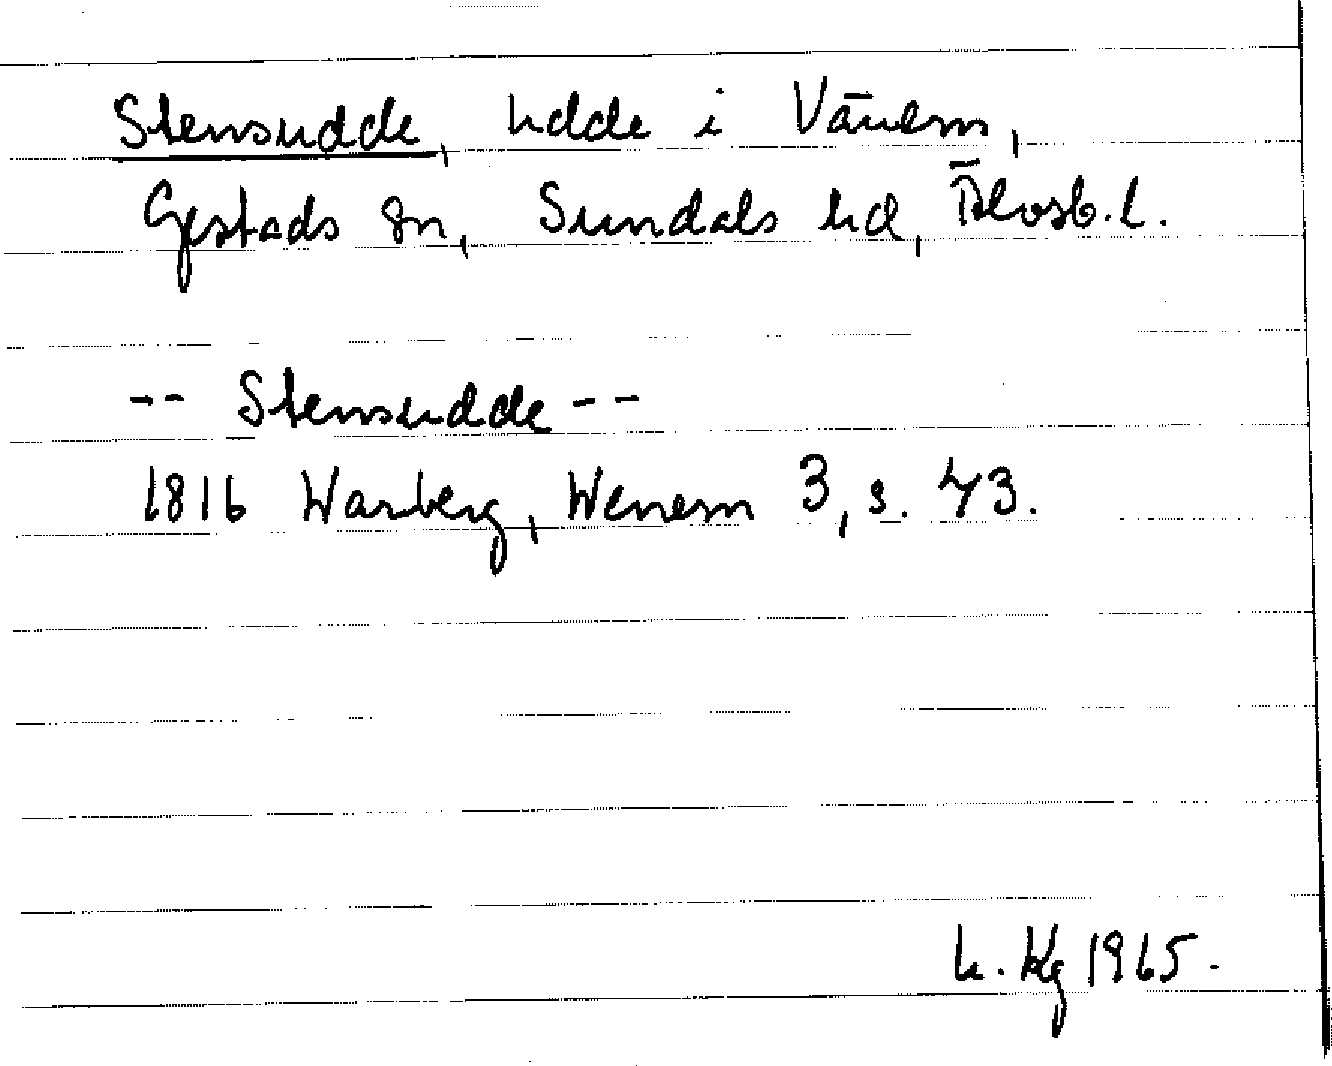 Stensudde, udde i Vänern,
Gestads sn, Sundals hd, Älvsb. l.
-- Stensudde --
1816 Warberg, Wenern 3, s. 43.
1965.